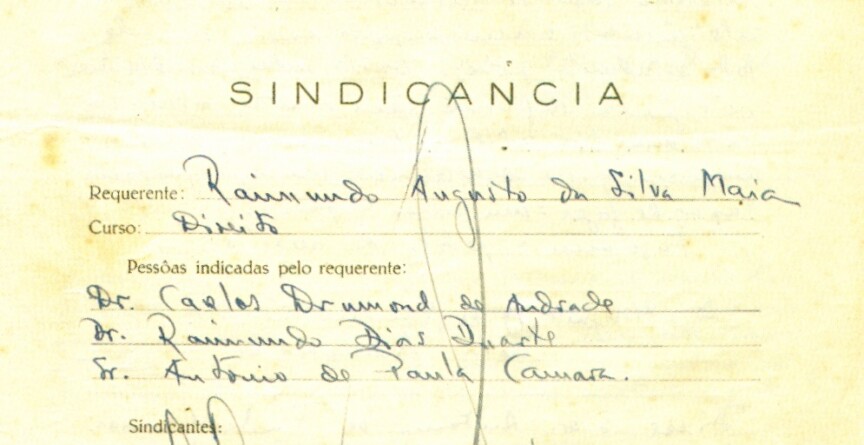 SINDICANCIA
Requerente: Raimundo Augusto da Silva Maia
Curso: Direito
Pessôas indicadas pelo requerente:
Dr. Carlos Drumond de Andrade
Dr. Raimundo Dias Duarte
Sr. Antonio de Paula Camara.
Sindicantes: